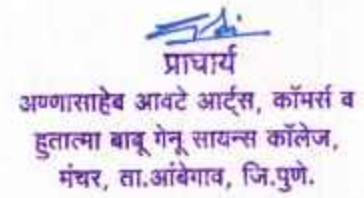 प्राचार्य
अण्णासाहेब आवटे आर्ट्स, कॉमर्स व
हुतात्मा बाबू गेनू सायन्स कॉलेज,
मंचर, ता.आंबेगाव, जि.पुणे.